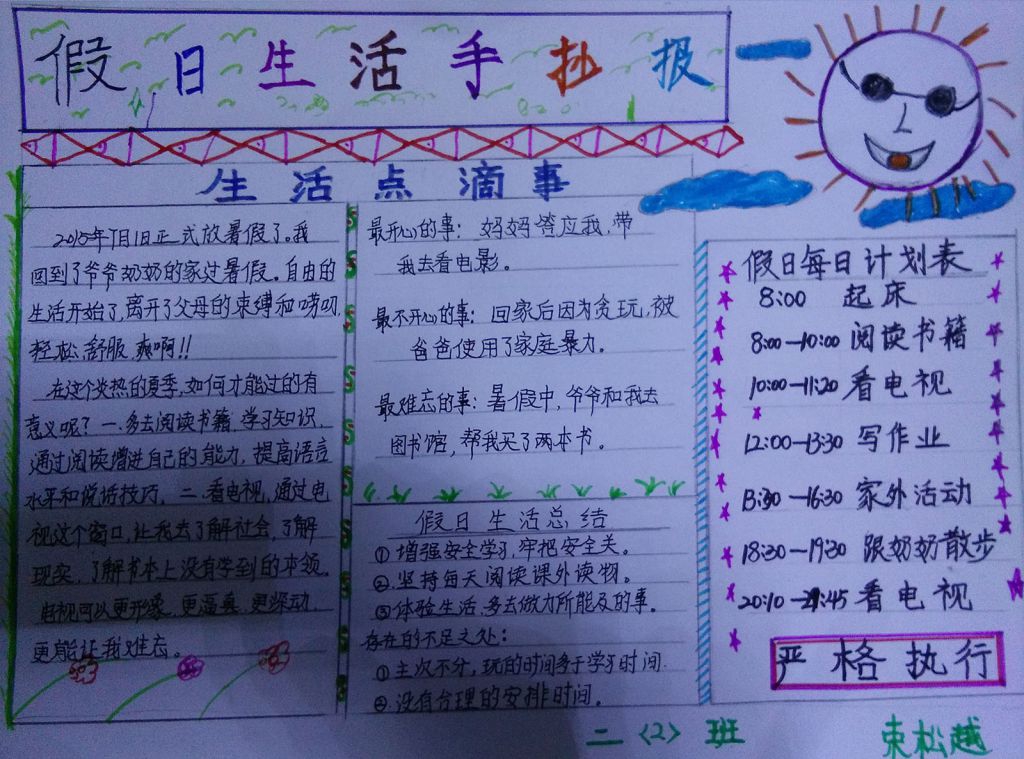 假日生活手抄报
生活点滴事
2015年7月1日正式放暑假了。我
回到了爷爷奶奶的家过暑假。自由的
生活开始了,离开了父母的束缚和唠叨,
轻松,舒服,爽啊!!
在这个炎热的夏季,如何才能过的有
意义呢?一.多去阅读书籍,学习知识,
通过阅读增进自己的能力,提高语言
水平和说话技巧,二.看电视,通过电
视这个窗口,让我去了解社会,了解
现实,了解书本上没有学到的本领。
电视可以更形象,更逼真,更深动,
更能让我难忘。
最开心的事:妈妈答应我,带
我去看电影。
最不开心的事:回家后因为贪玩,被
爸爸使用了家庭暴力。
最难忘的事:暑假中,爷爷和我去
图书馆,帮我买了两本书。
假日生活总结
①增强安全学习,牢把安全关。
②.坚持每天阅读课外读物。
③体验生活,多去做力所能及的事。
存在的不足之处:
①主次不分,玩的时间多于学习时间.
②没有合理的安排时间。
假日每日计划表
8:00 起床
8:00—10:00 阅读书籍
10:00—11:20 看电视
12:00—13:30 写作业
13:30—16:30 家外活动
18:30—19:30 跟奶奶散步
20:10—21:45 看电视
严格执行
二〈2〉班 束松越